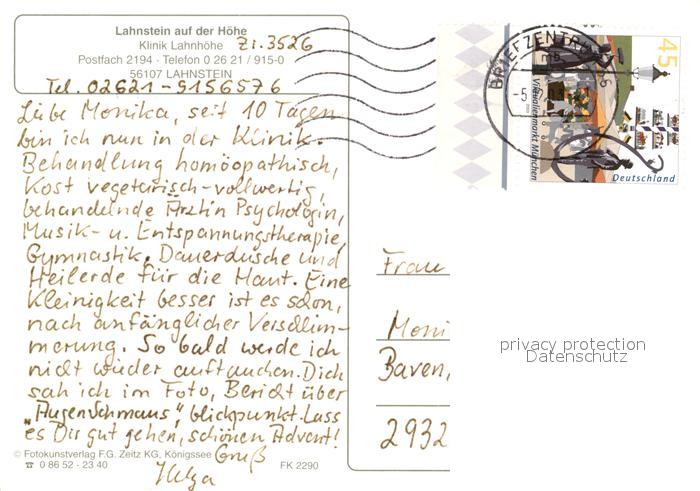 Lahnstein auf der Höhe
Klinik Lahnhöhe Zi. 3526
Postfach 2194 · Telefon 0 26 21 / 915-0
56107 LAHNSTEIN
Tel. 02621-9156576
Liebe Monika, seit 10 Tagen
bin ich nun in der Klinik.
Behandlung homöopathisch,
Kost vegetarisch-vollwertig,
behandelnde Ärztin Psychologin,
Musik- u. Entspannungstherapie,
Gymnastik. Dauerdusche und
Heilerde für die Haut. Eine
Kleinigkeit besser ist es schon,
nach anfänglicher Verschlim-
merung. So bald werde ich
nicht wieder auftauchen. Dich
sah ich im Foto, Bericht über
"Augenschmaus", blickpunkt. Lass
es Dir gut gehen, schönen Advent!
Gruß
Helga
© Fotokunstverlag F.G. Zeitz KG, Königssee
☎ 0 86 52 - 23 40 FK 2290
BRIEFZENTRUM
45
Viktualienmarkt München
Deutschland
Frau
Moni
2932
privacy protection
Datenschutz